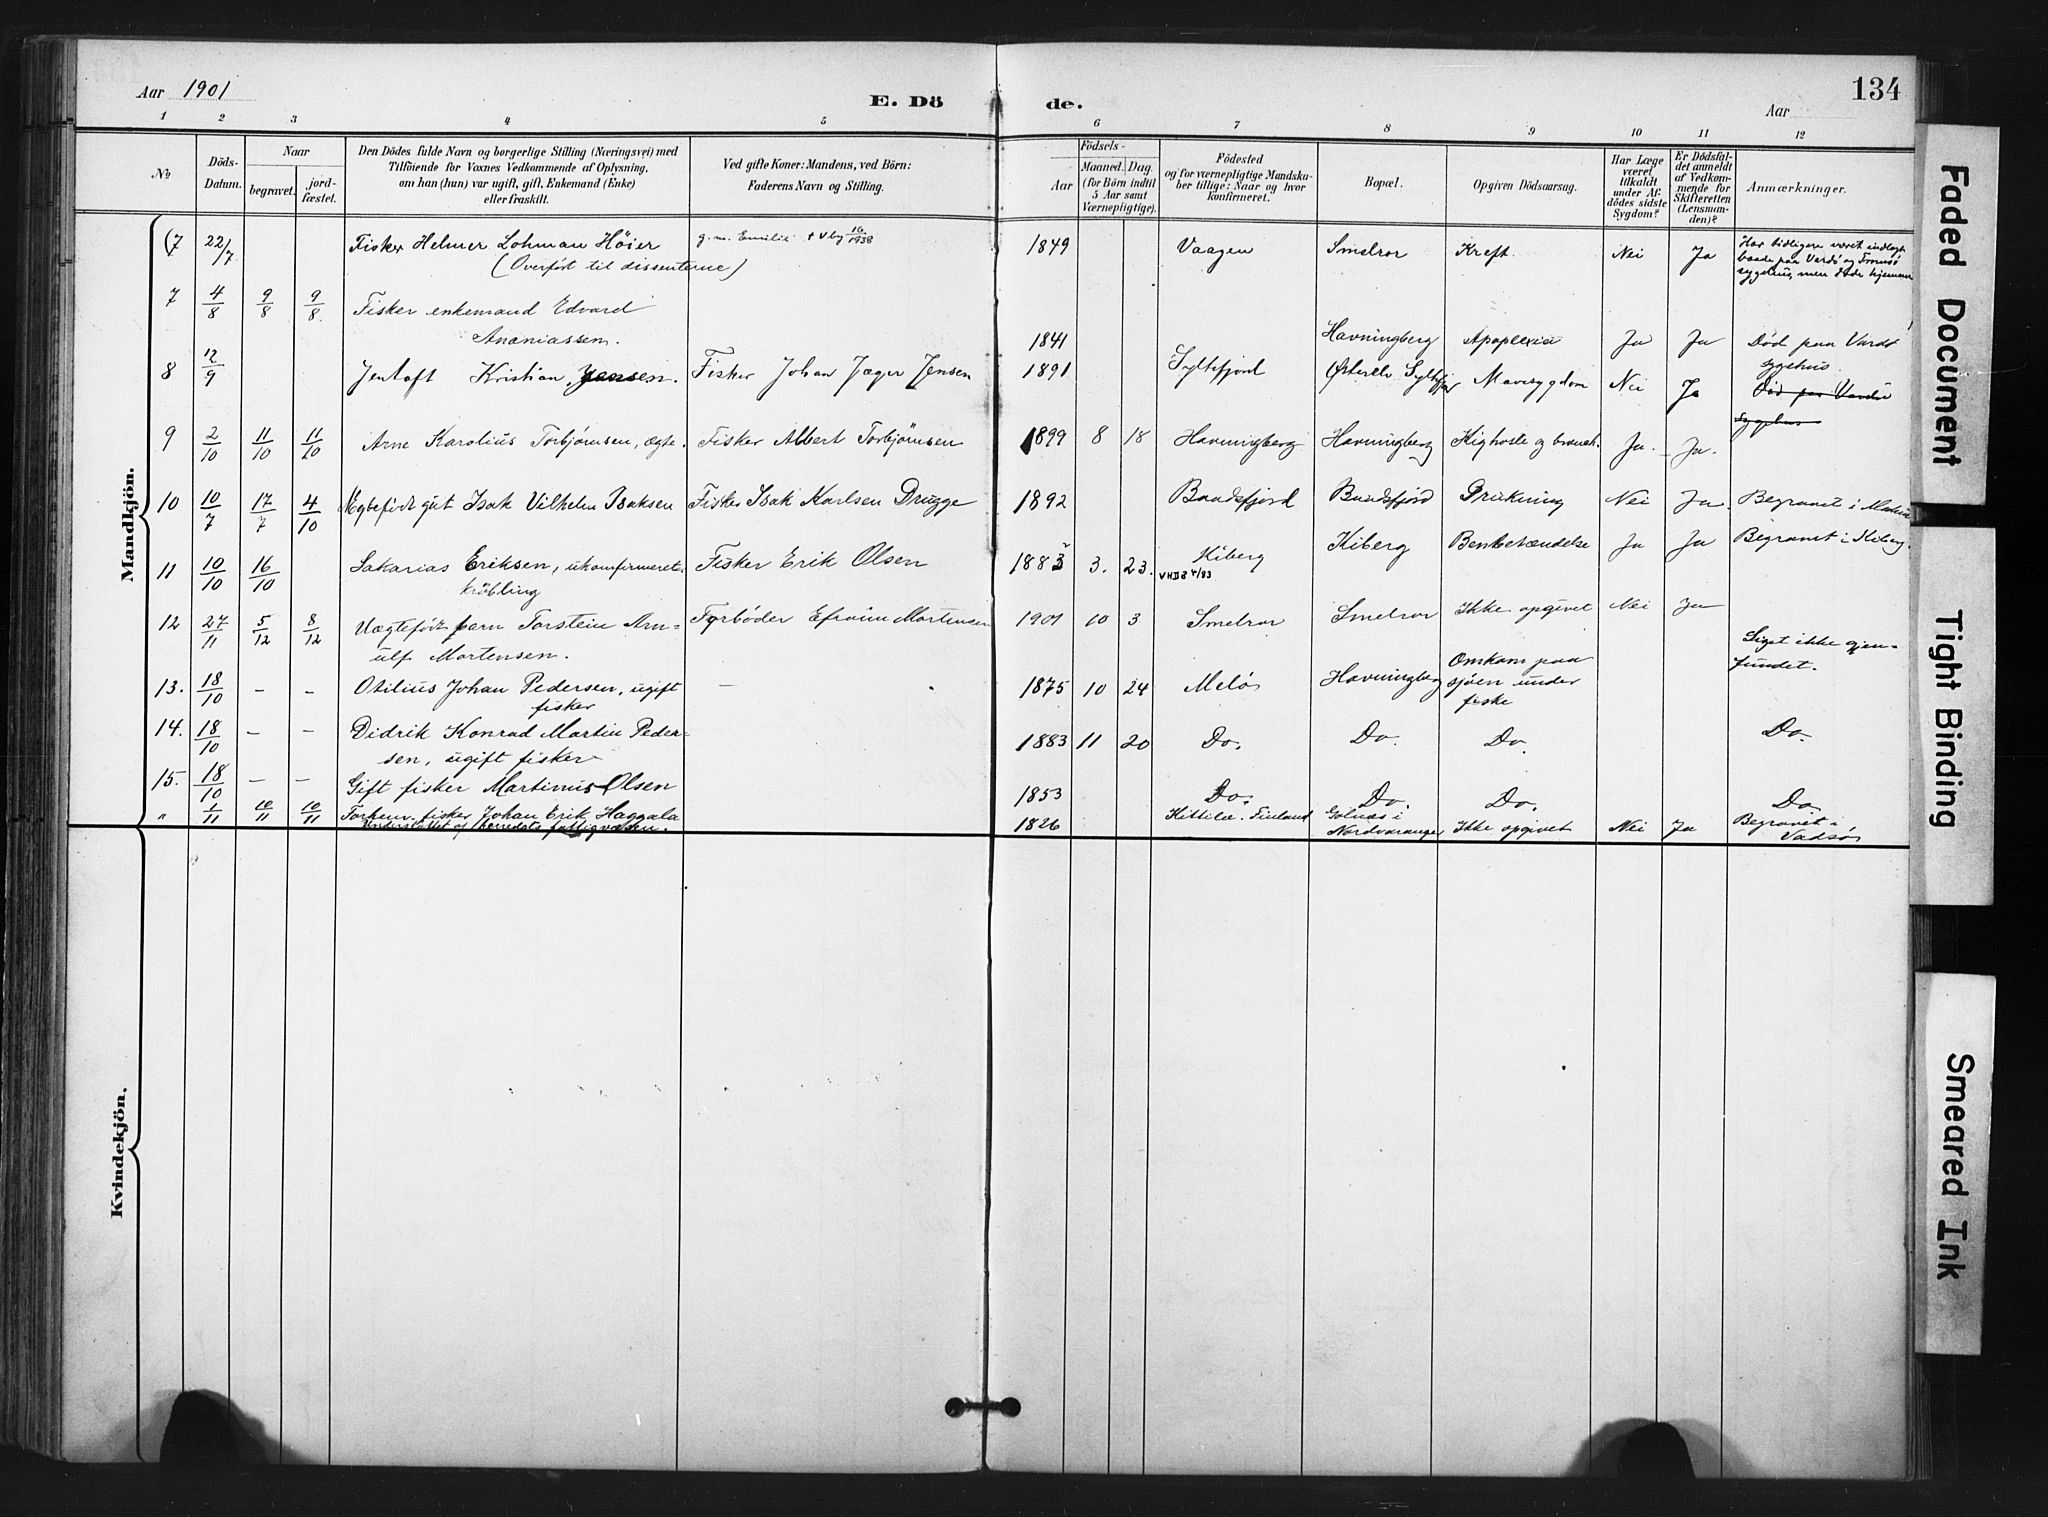 Aar 1901
E. Dö de.
Aar
134
1 2 3 4 5 6 7 8 9 10 11 12
No
Döds-Datum.
Naar
begravet.
jord-fæstet.
Den Dödes fulde Navn og borgerlige Stilling (Næringsvei) med
Tilföiende for Voxnes Vedkommende af Oplysning,
om han (hun) var ugift, gift, Enkemand (Enke)
eller fraskilt.
Ved gifte Koner: Mandens, ved Börn:
Faderens Navn og Stilling.
Födsels-
Aar
Maaned. Dag.
(for Börn indtil
5 Aar samt
Værnepligtige).
Födested
og for værnepligtige Mandska-
ber tillige: Naar og hvor
konfirmeret.
Bopæl.
Opgiven Dödsaarsag.
Har Læge
været
tilkaldt
under Af-
dödes sidste
Sygdom?
Er Dödsfal-
det anmeldt
af Vedkom-
mende for
Skifteretten
(Lensman-
den)?
Anmærkninger.
Mandkjön.
(7 22/7 Fisker Helmer Lohman Höier g. m. Emilie + Vbg 16/1938 1849 Vaagen Smelror Kreft Nei Ja Har tidligere været indlagt
(Overført til dissenterne) baade paa Vardö og Tromsö
sygehus, men döde hjemme
7 4/8 9/8 9/8 Fisker enkemand Edvard
Ananiassen. 1841 Havningberg Apoplexia Ja Ja Död paa Vardö
sygehus
8 12/9 Jentoft Kristian Jensen. Fisker Johan Jæger Jensen 1891 Syltefjord Österelv Syltefj Mavesygdom Nei Ja Död paa Vardö
Sygehus
9 2/10 11/10 11/10 Arne Karolius Torbjørnsen, ægte. Fisker Albert Torbjørnsen 1899 8 18 Havningberg Havningberg Kighoste og bronch. Ja. Ja.
10 10/7 17/7 4/10 Ægtefødt gut Isak Vilhelm Isaksen Fisker Isak Karlsen Drugge 1892 Baadsfjord Baadsfjord Drukning Nei Ja Begravet i
11 10/10 16/10 Sakarias Eriksen, ukonfirmeret Fisker Erik Olsen 1883 3. 23. Kiberg Kiberg Benbetændelse Ja Ja Begravet i Kiberg.
kröbling VHDa 4/83
12 27/11 5/12 8/12 Uægtefødt barn Torstein Arn- Forböder Efraim Mortensen 1901 10 3 Smelror Smelror Ikke opgivet Nei Ja
ulf Mortensen.
13. 18/10 – – Otilius Johan Pedersen, ugift – 1875 10 24 Melö Havningberg Omkom paa Liget ikke gjen-
fisker sjöen under fundet.
fiske
14. 18/10 – – Didrik Konrad Martin Peder- 1883 11 20 Do. Do. Do. Do.
sen, ugift fisker
15. 18/10 – – Gift fisker Martinus Olsen 1853 Do. Do. Do. Do
" 1/11 10/11 10/11 Forhenv. fisker Johan Erik Haggala 1826 Kittilæ. Finland Golnæs i Ikke opgivet Nei Ja Begravet i
Understøttet af herredets fattigvæsen. Nordvaranger Vadsø
Kvindekjön.
Faded Document
Tight Binding
Smeared Ink